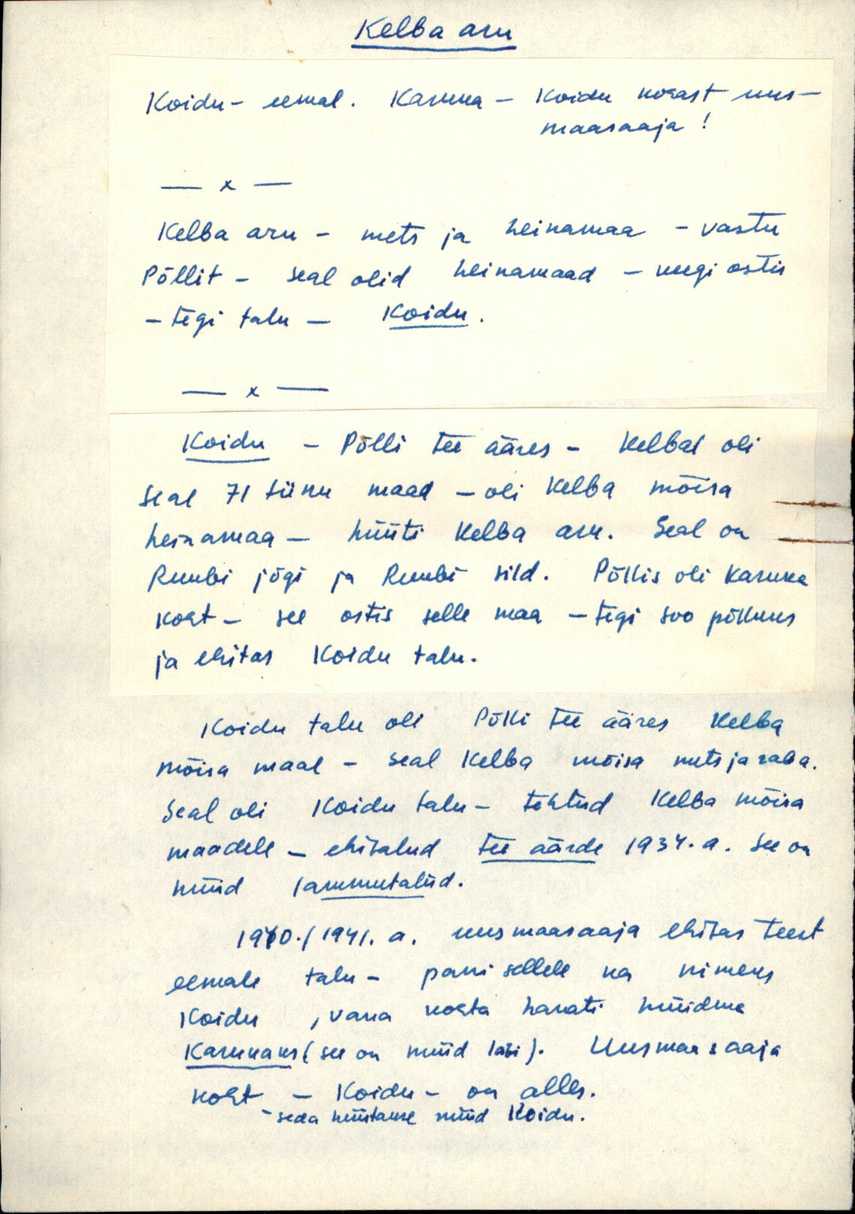 Kelba aru
Koidu - eemal. Karuna - Koidu kohast uus-
maasaaja!
— x —
Kelba aru - mets ja heinamaa - vastu
Põllit - seal olid heinamaad - keegi ostis
- tegi talu - Koidu.
— x —
Koidu - Põlli tee ääres - Kelbal oli
seal 71 tiinu maad - oli Kelba mõisa
heinamaa - hüüti Kelba aru. Seal on
Ruubi jõgi ja Ruubi sild. Põllis oli Karuna
koht - see ostis selle maa - tegi soo põlluks
ja ehitas Koidu talu.
Koidu talu oli Põlli tee ääres Kelba
mõisa maal - seal Kelba mõisa mets ja raba.
Seal oli Koidu talu - tehtud Kelba mõisa
maadele - ehitatud tee äärde 1934. a. See on
nüüd lammutatud.
1940./1941. a. uusmaasaaja ehitas teest
eemale talu - pani sellele ka nimeks
Koidu, vana kohta hakati hüüdma
Karunaks (see on nüüd läbi). Uusmaasaaja
koht - Koidu - on alles.
- seda hüütakse nüüd Koidu.